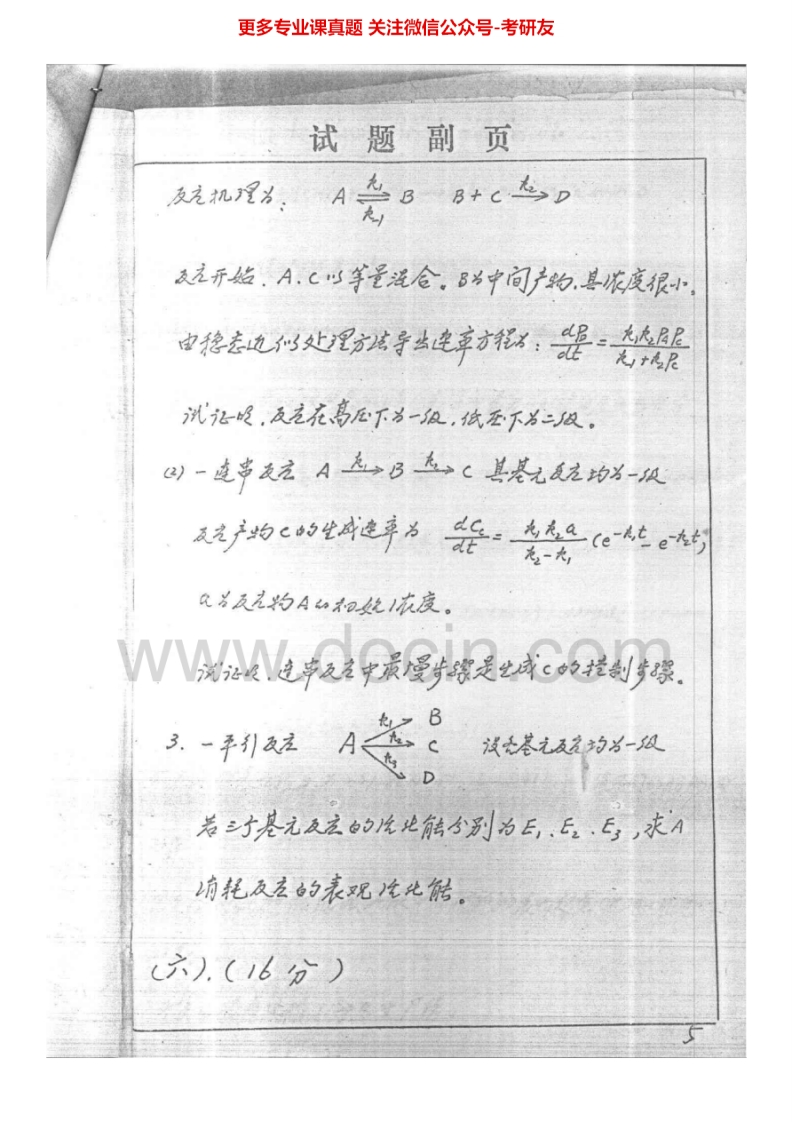 更多专业课真题 关注微信公众号-考研友
试 题 副 页
反应机理为: A ⇌ B B + C → D
k₁ k₋₁ k₂
反应开始, A、C以等量混合。B为中间产物,其浓度很小,
由稳态近似处理方法导出速率方程为: dP_D/dt = k₁k₂P_AP_C/(k₋₁+k₂P_C)
试证明,反应在高压下为一级,低压下为二级。
(2) 一连串反应 A —k₁→ B —k₂→ C 其基元反应均为一级
反应产物C的生成速率为 dC_c/dt = k₁k₂a/(k₂-k₁) (e^(-k₁t) - e^(-k₂t))
a为反应物A的初始浓度。
www.docin.com
试证明,连串反应中最慢步骤是生成C的控制步骤。
3. 一平行反应 A —k₁→ B —k₂→ C —k₃→ D 设各基元反应均为一级
若三个基元反应的活化能分别为E₁、E₂、E₃,求A
消耗反应的表观活化能。
(六).(16分)
5